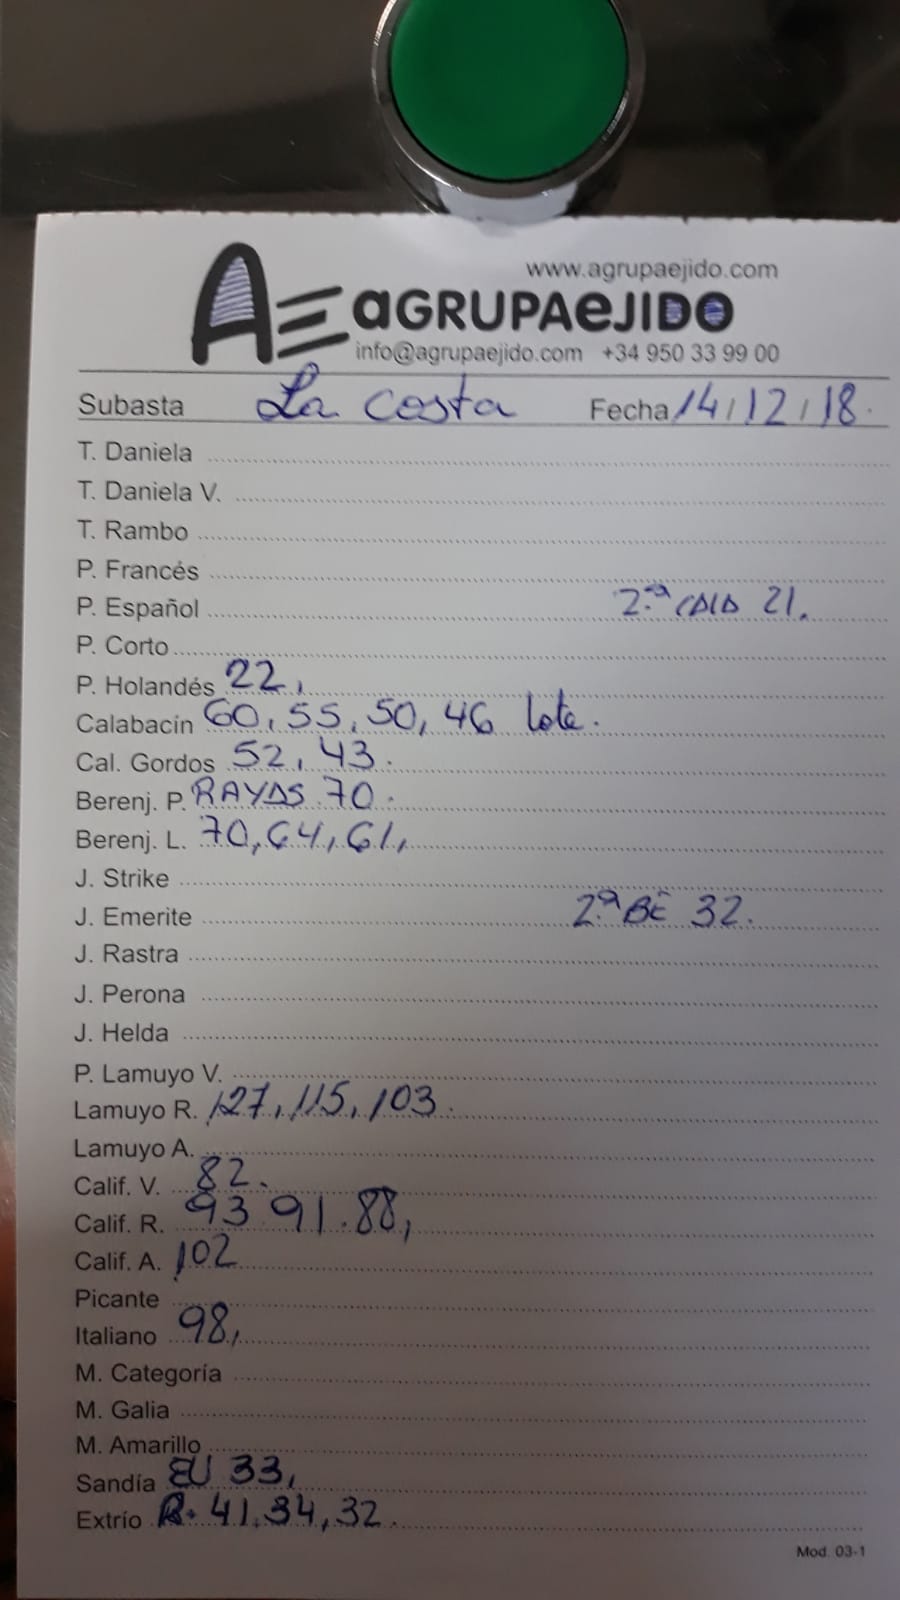 www.agrupaejido.com
AE aGRUPAeJIDO
info@agrupaejido.com +34 950 33 99 00
Subasta La costa Fecha 14/12/18.
T. Daniela
T. Daniela V.
T. Rambo
P. Francés
P. Español 2ª CAIDA 21.
P. Corto
P. Holandés 22,
Calabacín 60, 55, 50, 46 lote.
Cal. Gordos 52, 43.
Berenj. P. RAYAS 70.
Berenj. L. 70, 64, 61,
J. Strike
J. Emerite 2ª BE 32.
J. Rastra
J. Perona
J. Helda
P. Lamuyo V.
Lamuyo R. 127, 115, 103.
Lamuyo A.
Calif. V. 82.
Calif. R. 93 91. 88,
Calif. A. 102
Picante
Italiano 98,
M. Categoría
M. Galia
M. Amarillo
Sandía EU 33,
Extrío R. 41. 34, 32.
Mod. 03-1